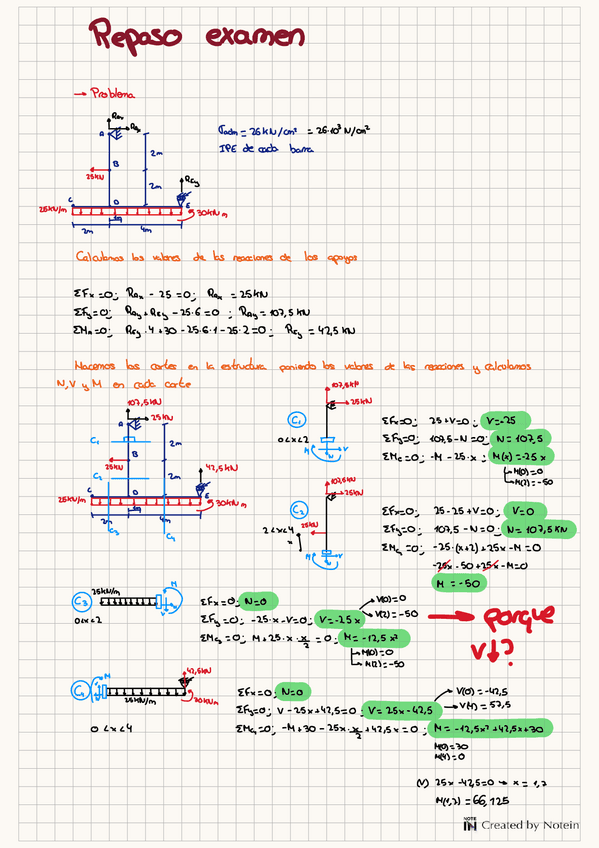 Repaso examen
→ Problema
σadm = 26 kN/cm² = 26·10³ N/cm²
IPE de cada barra
RAy
RAx
A
2m
B
25kN
2m
REy
C
D
E
25kN/m
30kN m
2m
4m
Calculamos los valores de las reacciones de los apoyos
ΣFx=0; RAx - 25 = 0; RAx = 25 kN
ΣFy=0; RAy + REy - 25·6 = 0; RAy = 107,5 kN
ΣMA=0; REy·4 + 30 - 25·6·1 - 25·2 = 0; REy = 42,5 kN
Hacemos los cortes en la estructura poniendo los valores de las reacciones y calculamos
N, V y M en cada corte
107,5kN
25kN
A
C1
2m
B
25kN
C2
2m
42,5kN
D
E
25kN/m
30kN m
2m
4m
C3
C4
107,5kN
25kN
C1
0<x<2
M
N
V
ΣFx=0; 25+V=0; V=-25
ΣFy=0; 107,5-N=0; N=107,5
ΣMC=0; -M-25·x; M(x)=-25x
M(0)=0
M(2)=-50
107,5kN
25kN
C2
2<x<4
25kN
x
M
N
V
ΣFx=0; 25-25+V=0; V=0
ΣFy=0; 107,5-N=0; N=107,5 kN
ΣMC2=0; -25·(x+2)+25x-M=0
-25x-50+25x-M=0
M=-50
C3
25kN/m
M
N
V
0<x<2
ΣFx=0; N=0
ΣFy=0; -25·x-V=0; V=-25x
V(0)=0
V(2)=-50
ΣMC3=0; M+25·x·x/2=0; M=-12,5x²
M(0)=0
M(2)=-50
porque
V↓?
C4
M
N
V
42,5kN
25kN/m
30kN m
0<x<4
ΣFx=0; N=0
ΣFy=0; V-25x+42,5=0; V=25x-42,5
V(0)=-42,5
V(4)=57,5
ΣMC4=0; -M+30-25x·x/2+42,5x=0; M=-12,5x²+42,5x+30
M(0)=30
M(4)=0
(V) 25x-42,5=0 → x=1,7
M(1,7)=66,125
NOTE IN Created by Notein